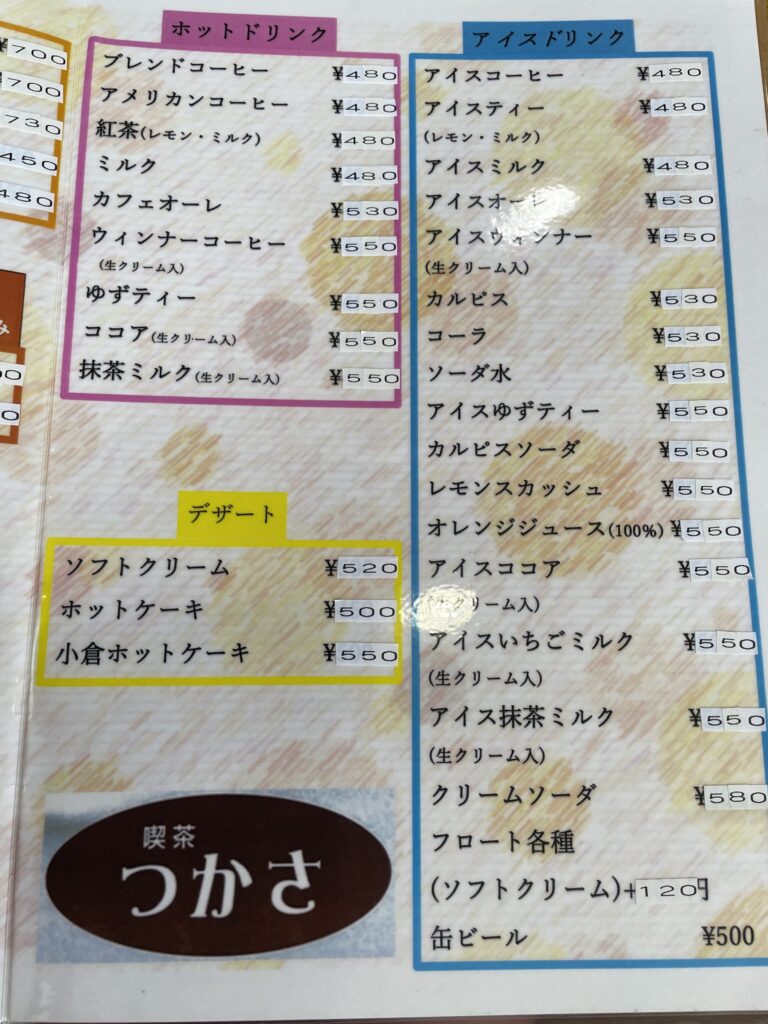 ¥700
¥700
730
450
480
み
0
0
ホットドリンク
ブレンドコーヒー ¥480
アメリカンコーヒー ¥480
紅茶(レモン・ミルク) ¥480
ミルク ¥480
カフェオーレ ¥530
ウィンナーコーヒー ¥550
(生クリーム入)
ゆずティー ¥550
ココア(生クリーム入) ¥550
抹茶ミルク(生クリーム入) ¥550
デザート
ソフトクリーム ¥520
ホットケーキ ¥500
小倉ホットケーキ ¥550
喫茶
つかさ
アイスドリンク
アイスコーヒー ¥480
アイスティー ¥480
(レモン・ミルク)
アイスミルク ¥480
アイスオーレ ¥530
アイスウィンナー ¥550
(生クリーム入)
カルピス ¥530
コーラ ¥530
ソーダ水 ¥530
アイスゆずティー ¥550
カルピスソーダ ¥550
レモンスカッシュ ¥550
オレンジジュース(100%) ¥550
アイスココア ¥550
(生クリーム入)
アイスいちごミルク ¥550
(生クリーム入)
アイス抹茶ミルク ¥550
(生クリーム入)
クリームソーダ ¥580
フロート各種
(ソフトクリーム)+120円
缶ビール ¥500